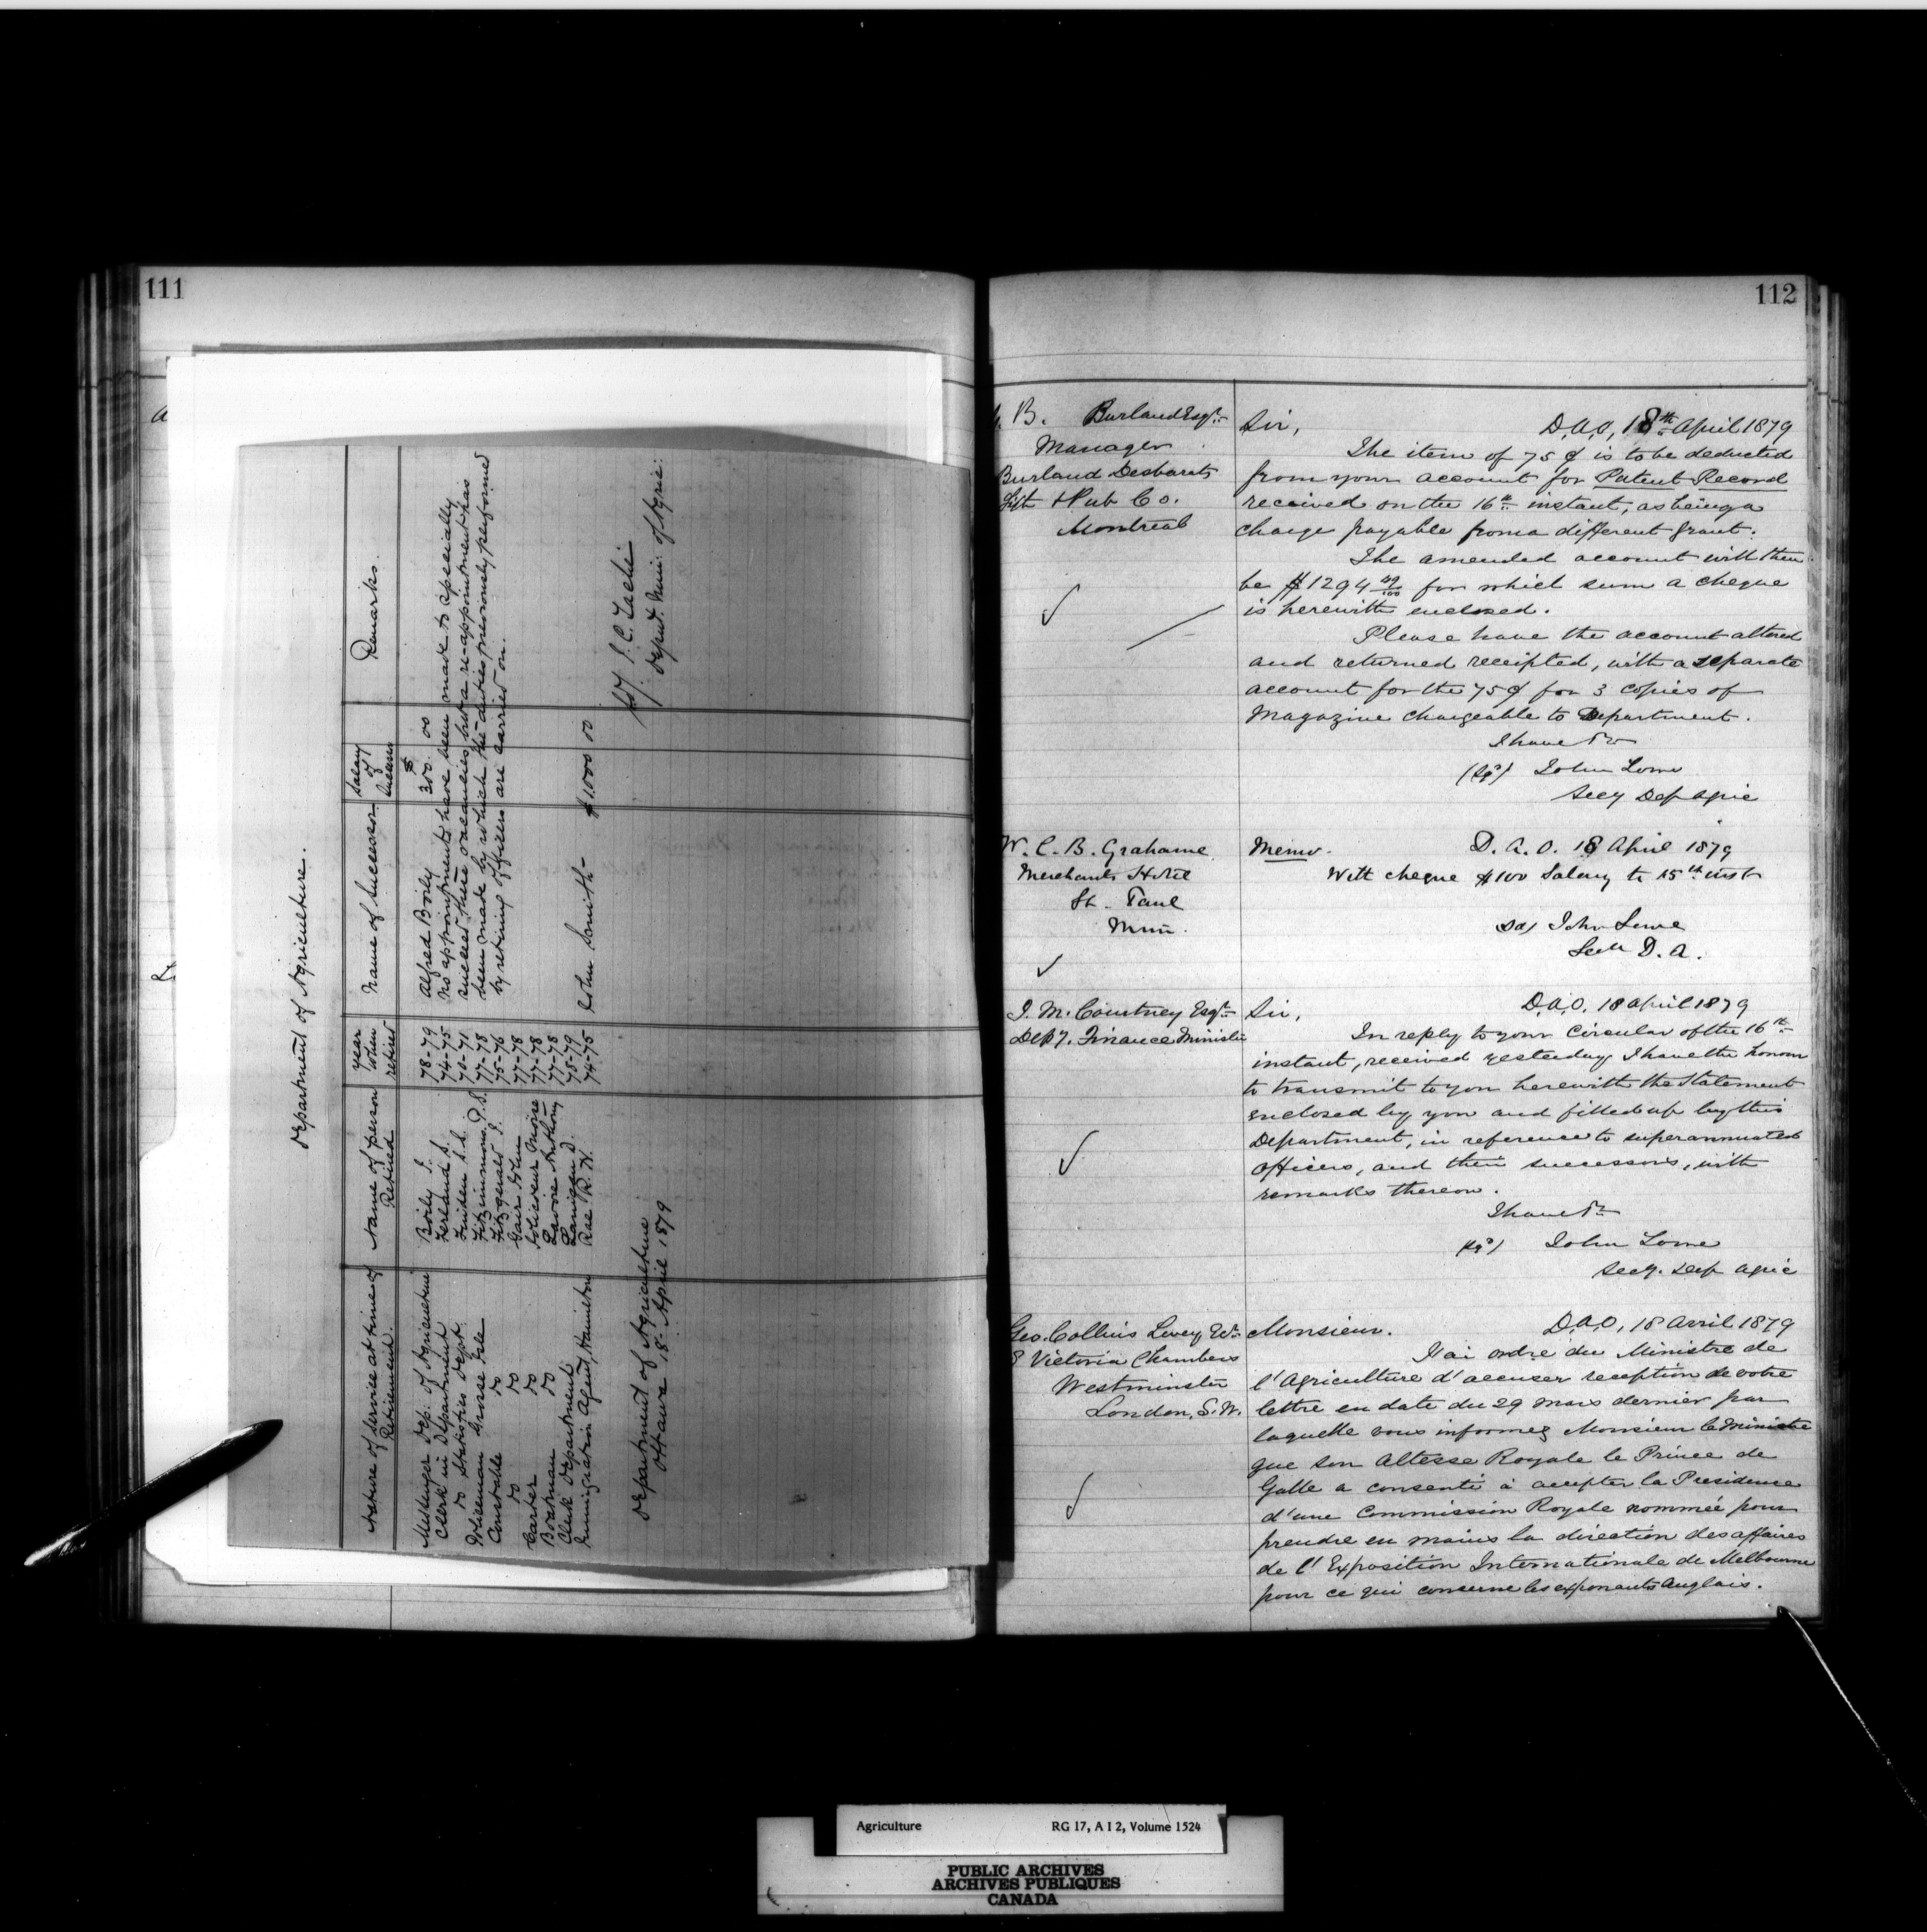 111
Department of Agriculture.
Nature of service at time of Retirement. | Name of person Retired | year when retired | Name of Successor | Salary of Success | Remarks.
Messenger Dep. of Agriculture | Boily J. | 78-79 | Alfred Boily | $ 300 00
Clerk in Department | Ferland S. | 74-75 | No appointments have been made to specially
do Statistics Dept. | 70-71 | succeed these vacancies but a re-appointment has
Policeman Grosse Isle | Fitzsimmons P. S. | 77-78 | been made by which the duties previously performed
Constable do | Fitzgerald J. | 75-76 | by retiring officers are carried on.
do do | Gair John | 77-78
Carter do | 77-78
Boatman do | Lavoie Anthony | 77-78
Clerk Department | Lanigan D. | 78-79
Immigration Agent, Hamilton | Rae R. H. | 74-75 | John Smith | $1000 00
Department of Agriculture
Ottawa 18. April 1879
J. C. Taché
Deput. Min: of Agric:
112
B. Burland Esqr.
Manager
Burland Desbarats
Lith & Pub Co.
Montreal
Sir, D.A.O, 18th April 1879
The item of 75 ¢ is to be deducted
from your account for Patent Record
received on the 16th instant, as being a
charge payable from a different grant.
The amended account will then
be $1294 49/100 for which sum a cheque
is herewith enclosed.
Please have the account altered
and returned receipted, with a separate
account for the 75¢ for 3 copies of
Magazine chargeable to Department.
I have &c
(Sgd) John Lowe
Secy Dep Agric
W. C. B. Grahame
Merchants Hotel
St. Paul
Minn.
Memo. D. A. O. 18 April 1879
With cheque $100 Salary to 15th inst
Sd/ John Lowe
D. A.
J. M. Courtney Esqr
Depy. Finance Minister
Sir, D.A.O, 18 April 1879
In reply to your Circular of the 16th
instant, received yesterday I have the honour
to transmit to you herewith the Statement
enclosed by you and filled up by this
Department, in reference to superannuated
officers, and their successors, with
remarks thereon.
I have &c
(Sgd) John Lowe
Secy. Dep Agric
Geo. Collins Levey Esqr.
8 Victoria Chambers
Westminster
London, S.W.
Monsieur. D.A.O, 18 Avril 1879
J'ai ordre du Ministre de
l'Agriculture d'accuser reception de votre
lettre en date du 29 mars dernier par
laquelle vous informez Monsieur le Ministre
que son Altesse Royale le Prince de
Galle a consenti à accepter la Presidence
d'une Commission Royale nommée pour
prendre en mains la direction des affaires
de l'Exposition Internationale de Melbourne
pour ce qui concerne les exposants Anglais.
Agriculture RG 17, A I 2, Volume 1524
PUBLIC ARCHIVES
ARCHIVES PUBLIQUES
CANADA